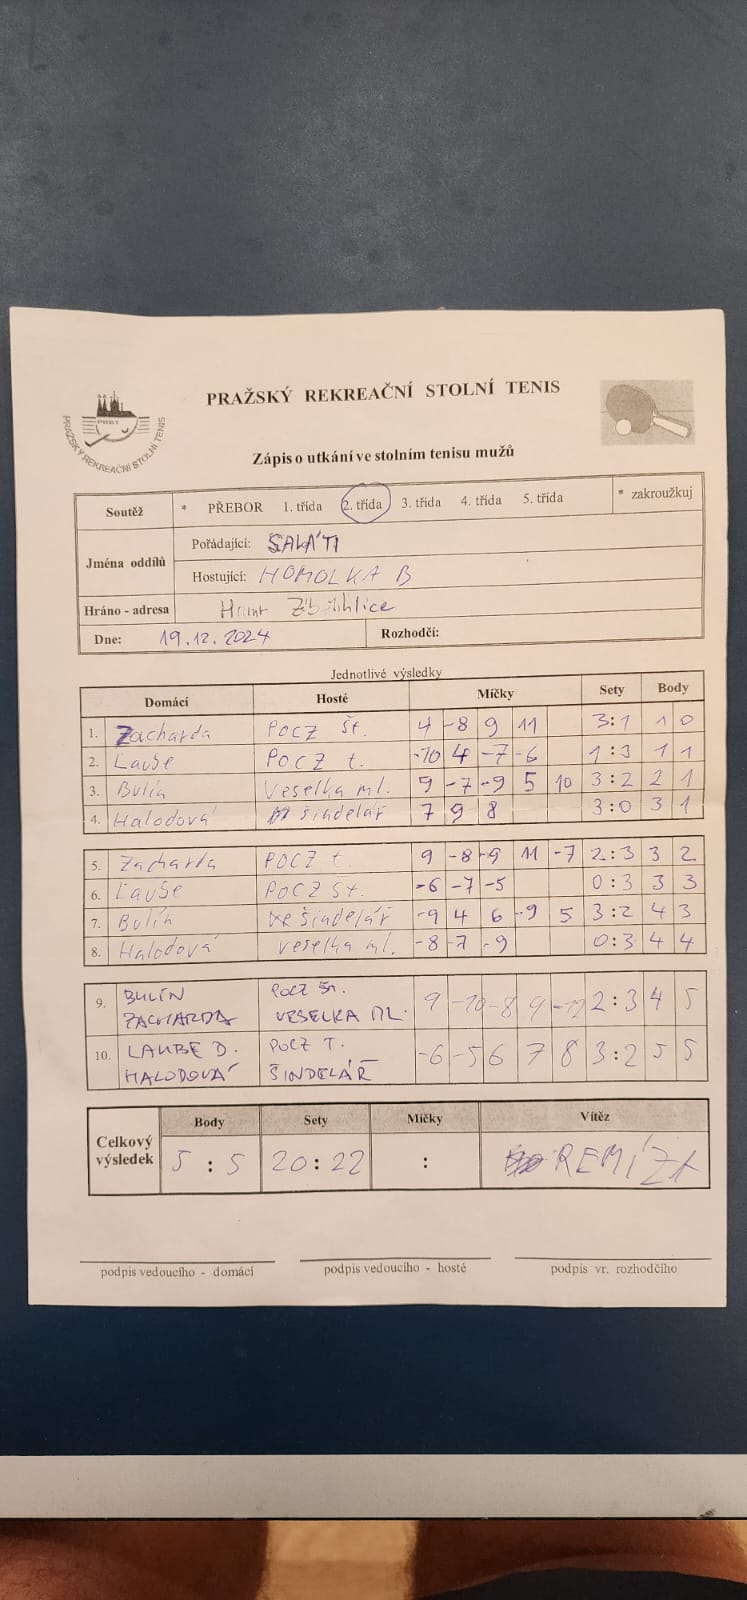 PRAŽSKÝ REKREAČNÍ STOLNÍ TENIS
PRAŽSKÝ REKREAČNÍ STOLNÍ TENIS
Zápis o utkání ve stolním tenisu mužů
Soutěž * PŘEBOR 1. třída 2. třída 3. třída 4. třída 5. třída * zakroužkuj
Jména oddílů
Pořádající: SALÁTI
Hostující: HOMOLKA B
Hráno - adresa Hamr
Dne: 19.12.2024 Rozhodčí:
Jednotlivé výsledky
Domácí Hosté Míčky Sety Body
1. Zacharda POCZ št. 4 -8 9 11 3:1 1 0
2. Laube POCZ t. -10 4 -7 -6 1:3 1 1
3. Bulín Veselka ml. 9 -7 -9 5 10 3:2 2 1
4. Halodová šindelář 7 9 8 3:0 3 1
5. Zacharda POCZ t. 9 -8 -9 11 -7 2:3 3 2
6. Laube POCZ št. -6 -7 -5 0:3 3 3
7. Bulín šindelář -9 4 6 -9 5 3:2 4 3
8. Halodová veselka ml. -8 -7 -9 0:3 4 4
9. BULÍN POCZ ŠT. 9 -10 -8 9 -12 2:3 4 5
ZACHARDA VESELKA ML.
10. LAUBE D. POCZ T. -6 -5 6 7 8 3:2 5 5
HALODOVÁ ŠINDELÁŘ
Celkový výsledek
Body Sety Míčky Vítěz
5 : 5 20:22 : REMÍZA
podpis vedoucího - domácí podpis vedoucího - hosté podpis vr. rozhodčího